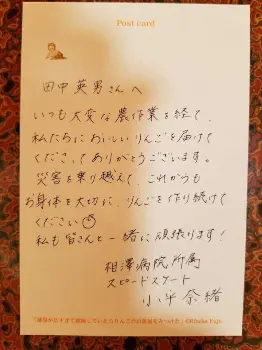 Post card
田中英男さんへ
いつも大変な農作業を経て、
私たちにおいしいりんごを届けて
くださってありがとうございます。
災害を乗り越えて、これからも
お身体を大切に、りんごを作り続けて
ください
私も皆さんと一緒に頑張ります!
相澤病院所属
スピードスケート
小平奈緒